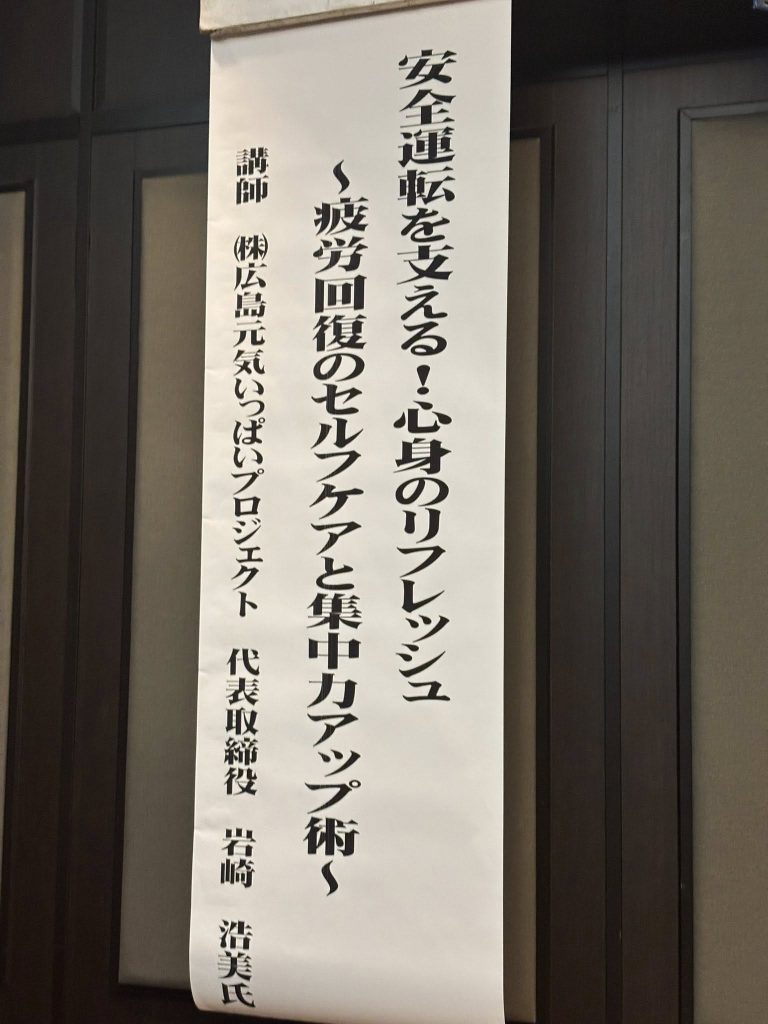 安全運転を支える！心身のリフレッシュ
～疲労回復のセルフケアと集中力アップ術～
講師　㈱広島元気いっぱいプロジェクト　代表取締役　岩崎　浩美氏